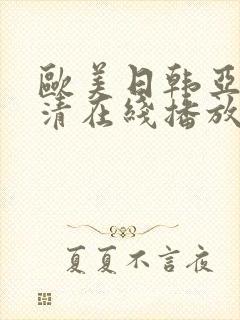 歐美日韩亞
清在綫播放
夏夏不言夜